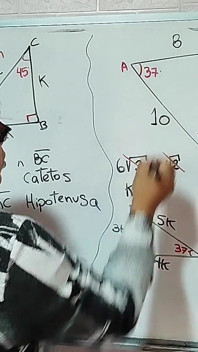 C
45
K
B
n BC
Catetos
C Hipotenusa
8
A 37°
10
6√
K
5K
37
4K